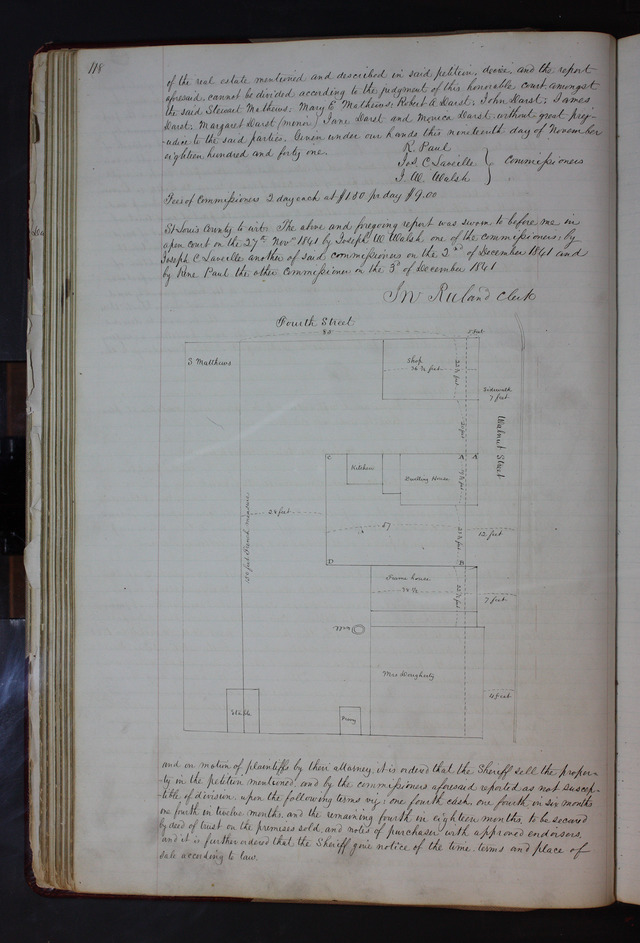 118
of the real estate mentioned and described in said petition, devise, and the report
aforesaid, cannot be divided according to the judgment of this honorable court amongst
the said Stewart Mathews, Mary E Mathews, Robert A Darst, John Darst, James
Darst, Margaret Darst (minor) Jane Darst and Monica Darst without great prej-
udice to the said parties. Given under our hands this nineteenth day of November
eighteen hundred and forty one.
R. Paul
Jos. C Laveille
J. W. Walsh
Commissioners
Fees of Commissioners 2 day each at $1.50 pr day $9.00
St Louis County to wit. The above and foregoing report was sworn to before me in
open court on the 27th Novr 1841 by Joseph W. Walsh, one of the commissioners; by
Joseph C Laveille another of said commissioners on the 2nd of December 1841 and
by Rene Paul the other Commissioner on the 3d of December 1841
Jn Ruland Clerk
Fourth Street
80
5 feet
S. Matthews
Shop
Sidewalk
7 feet
Walnut Street
C
A
Kitchen
Dwelling House
24 feet
57
12 feet
D
B
Frame house
7 feet
Mrs Dougherty
4 feet
Stable
Privy
and on motion of plaintiffs by their attorney it is ordered that the Sheriff sell the proper-
ty in the petition mentioned, and by the commissioners aforesaid reported as not suscep-
tible of division, upon the following terms viz: one fourth cash, one fourth in six months
one fourth in twelve months, and the remaining fourth in eighteen months, to be secured
by deed of trust on the premises sold, and notes of purchaser with approved endorsers.
and it is further ordered that the Sheriff give notice of the time, terms and place of
sale according to law.